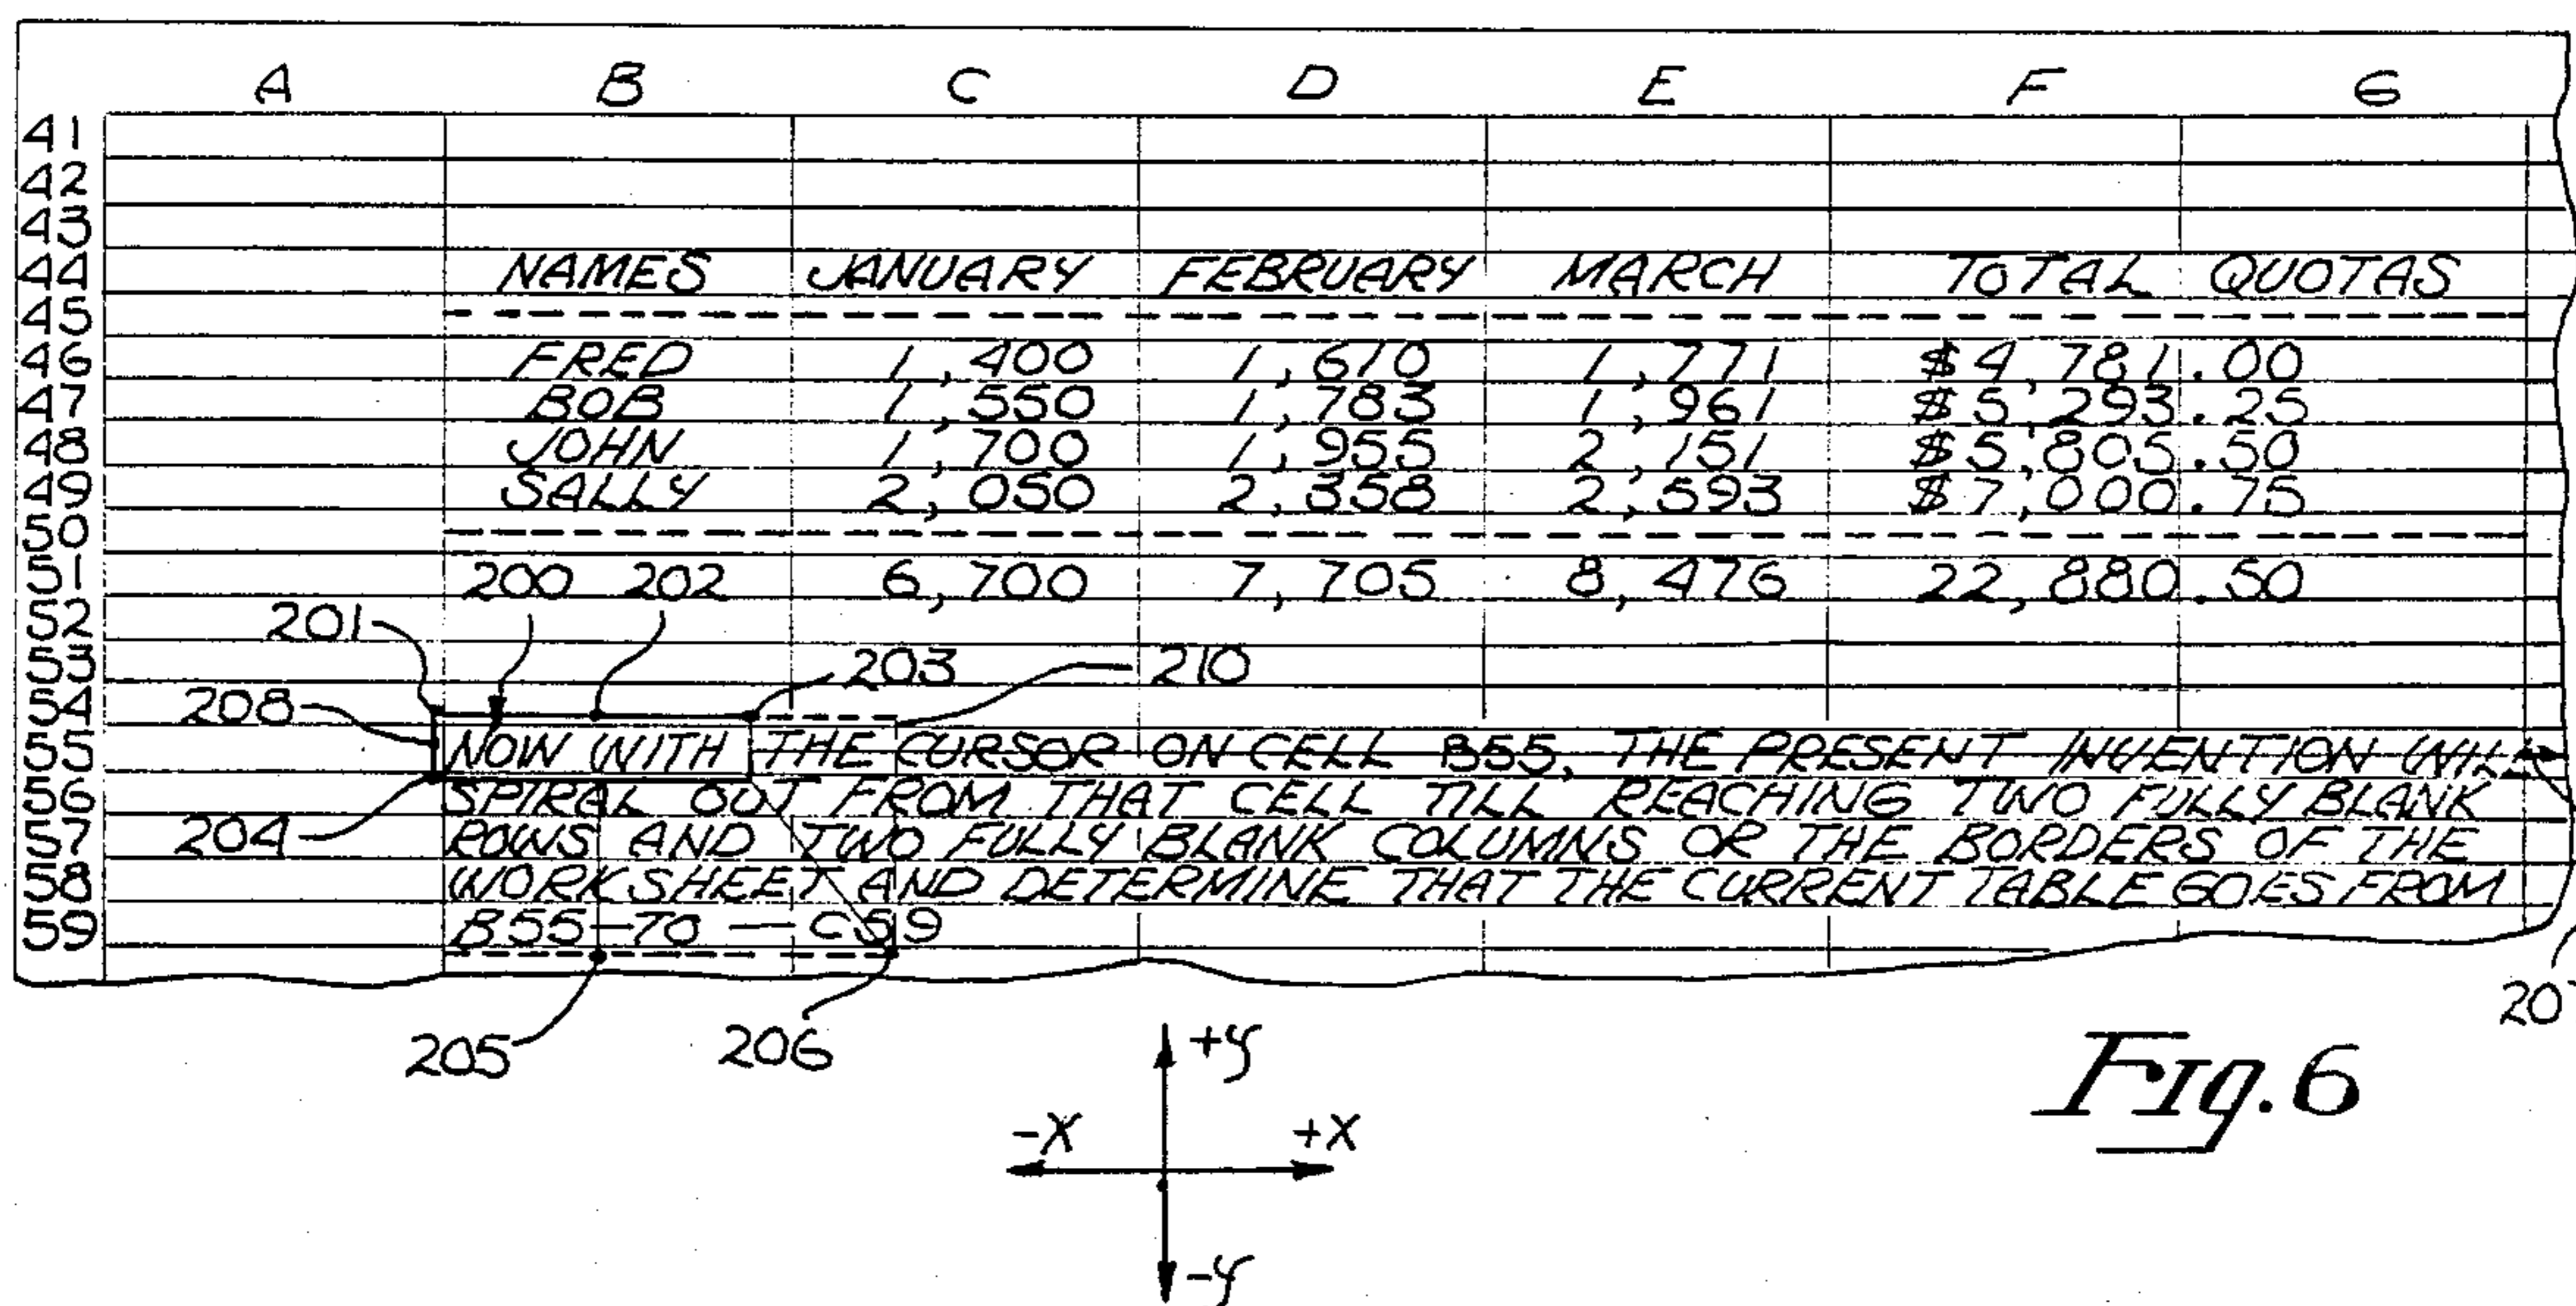 A B C D E F G
41
42
43
44 NAMES JANUARY FEBRUARY MARCH TOTAL QUOTAS
45
46 FRED 1,400 1,610 1,771 $4,781.00
47 BOB 1,550 1,783 1,961 $5,293.25
48 JOHN 1,700 1,955 2,151 $5,805.50
49 SALLY 2,050 2,358 2,593 $7,000.75
50
51 200 202 6,700 7,705 8,476 22,880.50
52 201
53 203 210
54 208
55 NOW WITH THE CURSOR ON CELL B55, THE PRESENT INVENTION
56 SPIRAL OUT FROM THAT CELL TILL REACHING TWO FULLY BLANK
57 204 ROWS AND TWO FULLY BLANK COLUMNS OR THE BORDERS OF THE
58 WORKSHEET AND DETERMINE THAT THE CURRENT TABLE GOES FROM
59 B55-TO-C59
205 206
+y
-X +X
-y
Fig. 6